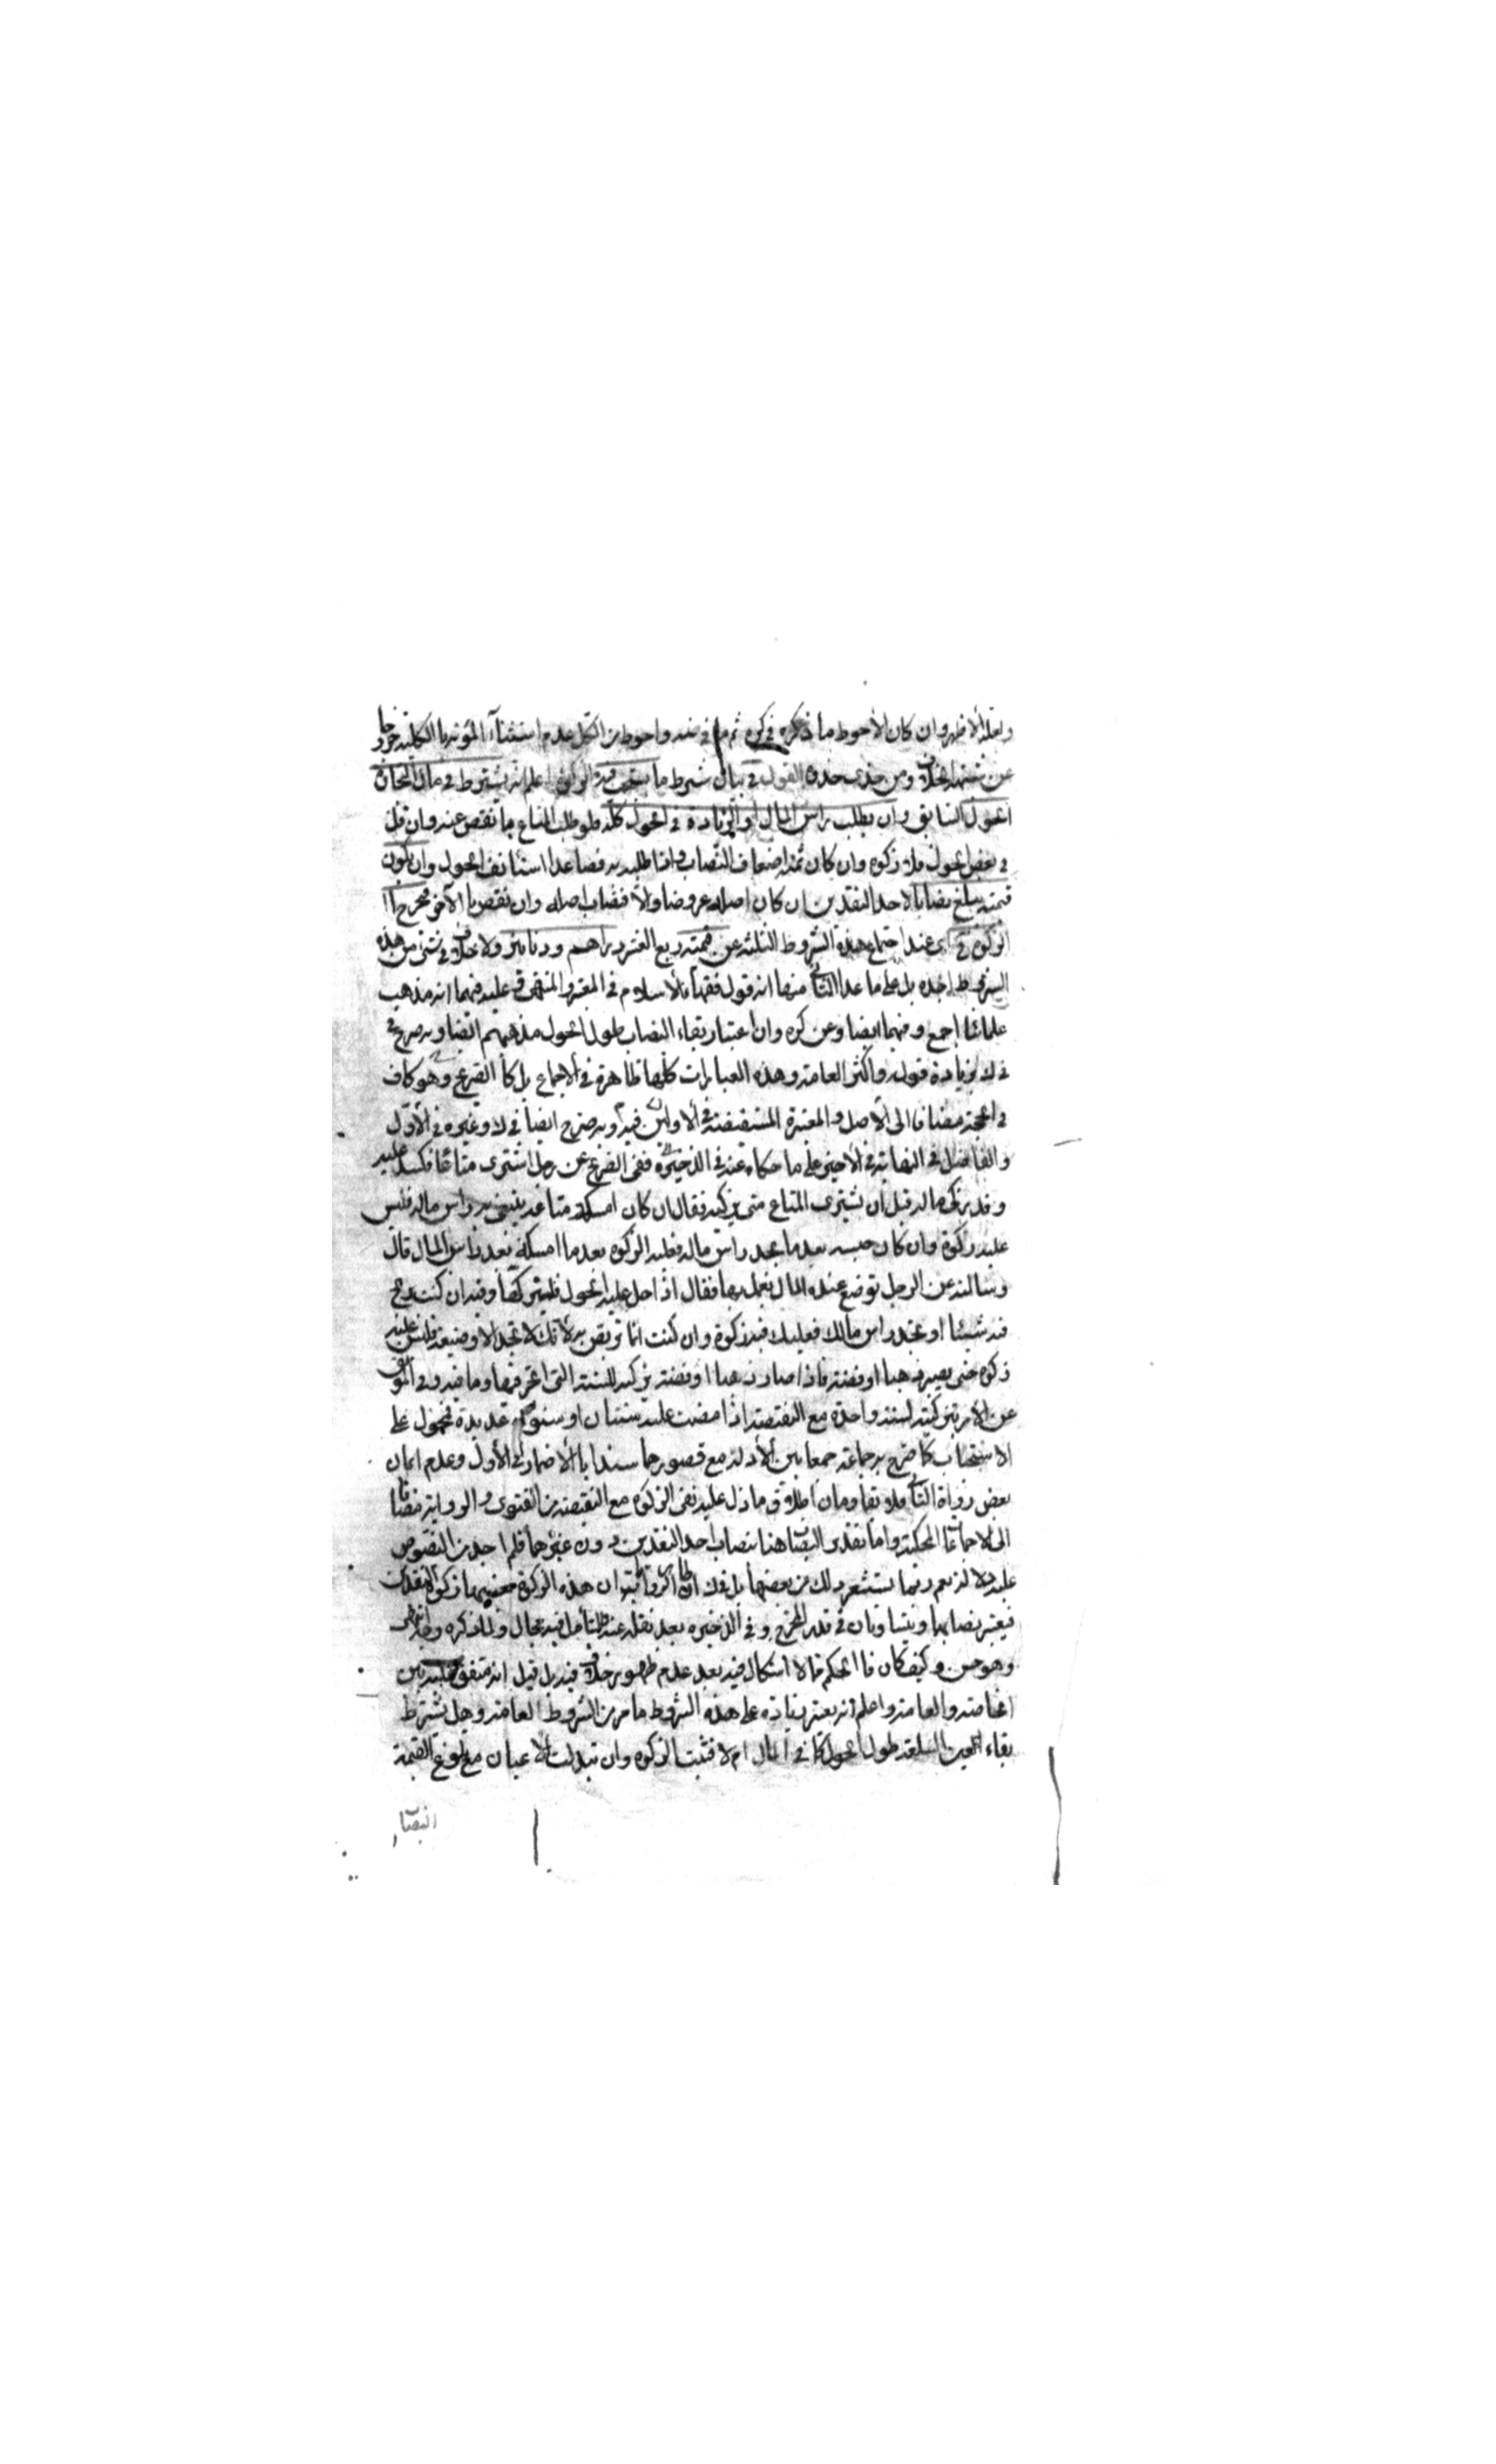 ولعله الأظهر وان كان الأحوط ما ذكره في كره ثم ما في سه واحوط من الكل عدم استثناء المؤنة بالكلية خروجا
عن شبهة الخلاف ومن حذى حذوه القول في بيان شرط ما يستحب فيه الزكوة اعلم انه يشترط في مال التجارة
الحول السابق وان يطلب براس المال او الزيادة في الحول كله فلو طلب المتاع بانقص عنه وان قل
في بعض الحول فلا زكوة وان كان ثمنه اضعاف النصاب واذا طلب به فصاعدا استانف الحول وان يكون
قيمته يبلغ نصابا لاحد النقدين ان كان اصله عروضا والا فنصاب اصله وان نقص بالآخر فيخرج
الزكوة عند اجتماع هذه الشروط الثلثة عن قيمته ربع العشر دراهم ودنانير ولا خلاف في شئ من هذه
الشروط اجده بل على ما عدا الثالث منها انه قول فقهاء الاسلام في المعتبر والمنتهى وعليه فيهما انه مذهب
علمائنا اجمع وفيهما ايضا وعن كره وان اعتبار بقاء النصاب طول الحول مذهبهم ايضا وبه صرح في
في ك بزيادة قوله واكثر العامة وهذه العبارات كلها ظاهرة في الاجماع بل كالصريح وهو كاف
في الحجة مضافا الى الأصل والمعتبرة المستفيضة في الاولين وبه صرح ايضا في ك وغيره في الأول
والفاضل في النهاية في الأخير على ما حكاه عنه في الذخيرة ففي الصحيح عن رجل اشترى متاعا فكسد عليه
وقد زكى ماله قبل ان يشترى المتاع متى يزكيه فقال ان كان امسك متاعه يبتغى به راس ماله فليس
عليه زكوة وان كان حبسه بعد ما يجد راس ماله فعليه الزكوة بعد ما امسكه بعد راس المال قال
وسالته عن الرجل توضع عنده المال يعمل بها فقال اذا حال عليه الحول فليزكها وفيه ان كنت تربح
فيه شيئا او تجد راس مالك فعليك فيه زكوة وان كنت انما تربص به لأنك لا تجد الا وضيعة فليس عليك
زكوة حتى يصير ذهبا او فضة فاذا صار ذهبا او فضة فزكه للسنة التى اتجرت فيها وما فيه وفي الموثق
عن الأمر بتزكيته لسنة واحدة مع النقيصة اذا مضت عليه سنتان او سنون عديدة فمحمول على
الاستحباب كما صرح به جماعة جمعا بين الأدلة مع قصورهما سندا بالأضمار في الأول وعدم ايمان
بعض رواة الثانى فلا يقاومان اطلاق ما دل عليه نفى الزكوة مع النقيصة من الفتوى والرواية مضافا
الى الاجماعات المحكية واما تقدير النصاب هنا بنصاب احد النقدين دون غيرهما فلم اجد من النصوص
عليه دلالة نعم ربما يستشعر ذلك من بعضها بل في ك ان هذه الزكوة بعينها زكوة النقدين
فيعتبر نصابهما ويتساويان في قدر المخرج وفي الذخيرة بعد نقله عنه وللتأمل فيه مجال ولما ذكره
وهو حسن وكيف كان فالحكم مما لا اشكال فيه بعد عدم ظهور خلاف فيه بل قيل انه متفق عليه بين
الخاصة والعامة واعلم انه يعتبر زيادة على هذه الشروط ما مر من الشروط العامة وهل يشترط
بقاء العين السلعة طول الحول كما في المال ام لا فتثبت الزكوة وان تبدلت الاعيان مع بلوغ القيمة
النصاب